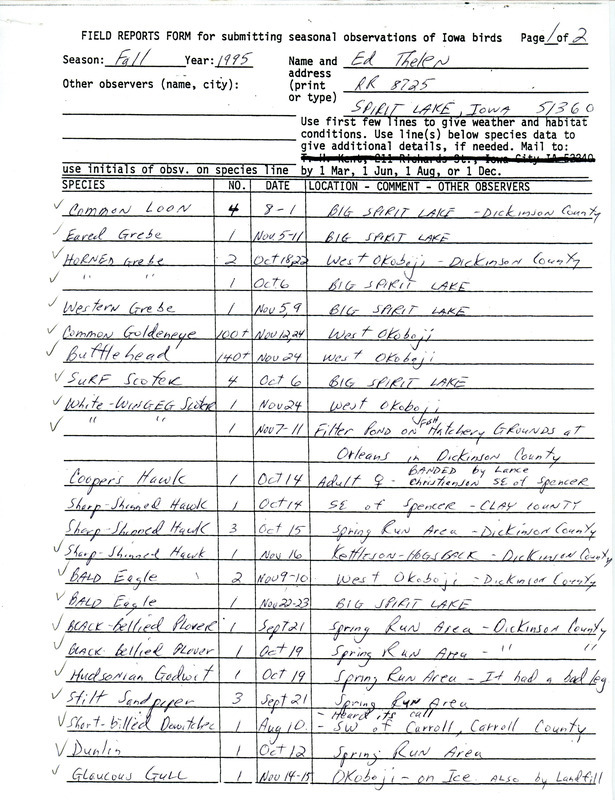 FIELD REPORTS FORM for submitting seasonal observations of Iowa birds Page 1 of 2
Season: Fall Year: 1995 Name and address (print or type) Ed Thelen
Other observers (name, city): RR 8725
SPIRIT LAKE, IOWA 51360
Use first few lines to give weather and habitat
conditions. Use line(s) below species data to
give additional details, if needed. Mail to:
T. H. Kent, 211 Richards St., Iowa City IA 52240
use initials of obsv. on species line by 1 Mar, 1 Jun, 1 Aug, or 1 Dec.
SPECIES NO. DATE LOCATION - COMMENT - OTHER OBSERVERS
✓ Common Loon 4 8-1 BIG SPIRIT LAKE - Dickinson County
✓ Eared Grebe 1 Nov 5-11 BIG SPIRIT LAKE
✓ HORNED Grebe 2 Oct 18,22 West Okoboji - Dickinson County
✓ " " 1 Oct 6 BIG SPIRIT LAKE
✓ Western Grebe 1 Nov 5,9 BIG SPIRIT LAKE
✓ Common Goldeneye 100+ Nov 12,24 West Okoboji
✓ Bufflehead 140+ Nov 24 West Okoboji
✓ SURF Scoter 4 Oct 6 BIG SPIRIT LAKE
✓ White-WINGEG Scoter 1 Nov 24 West Okoboji
✓ " " 1 Nov 7-11 Filter POND ON FISH Hatchery GROUNDS at
Orleans in Dickinson County
Coopers Hawk 1 Oct 14 Adult ♀ - BANDED by Lance Christiansen SE of Spencer
Sharp-Shinned Hawk 1 Oct 14 SE of Spencer - CLAY COUNTY
Sharp-Shinned Hawk 3 Oct 15 Spring Run Area - Dickinson County
✓ Sharp-Shinned Hawk 1 Nov 16 Kettleson-HOGSBACK - Dickinson County
✓ BALD Eagle 2 Nov 9-10 West Okoboji - Dickinson County
✓ BALD Eagle 1 Nov 22-23 BIG SPIRIT LAKE
✓ BLACK-bellied Plover 1 Sept 21 Spring RUN Area - Dickinson County
✓ BLACK-bellied Plover 1 Oct 19 Spring RUN Area - " "
✓ Hudsonian Godwit 1 Oct 19 Spring RUN Area - It had a bad leg
✓ Stilt Sandpiper 3 Sept 21 Spring RUN Area
✓ Short-billed Dowitcher 1 Aug 10 - Heard its call - SW of Carroll, Carroll County
✓ Dunlin 1 Oct 12 Spring RUN Area
✓ Glaucous Gull 1 Nov 14-15 Okoboji - on Ice. ALSO by Landfill